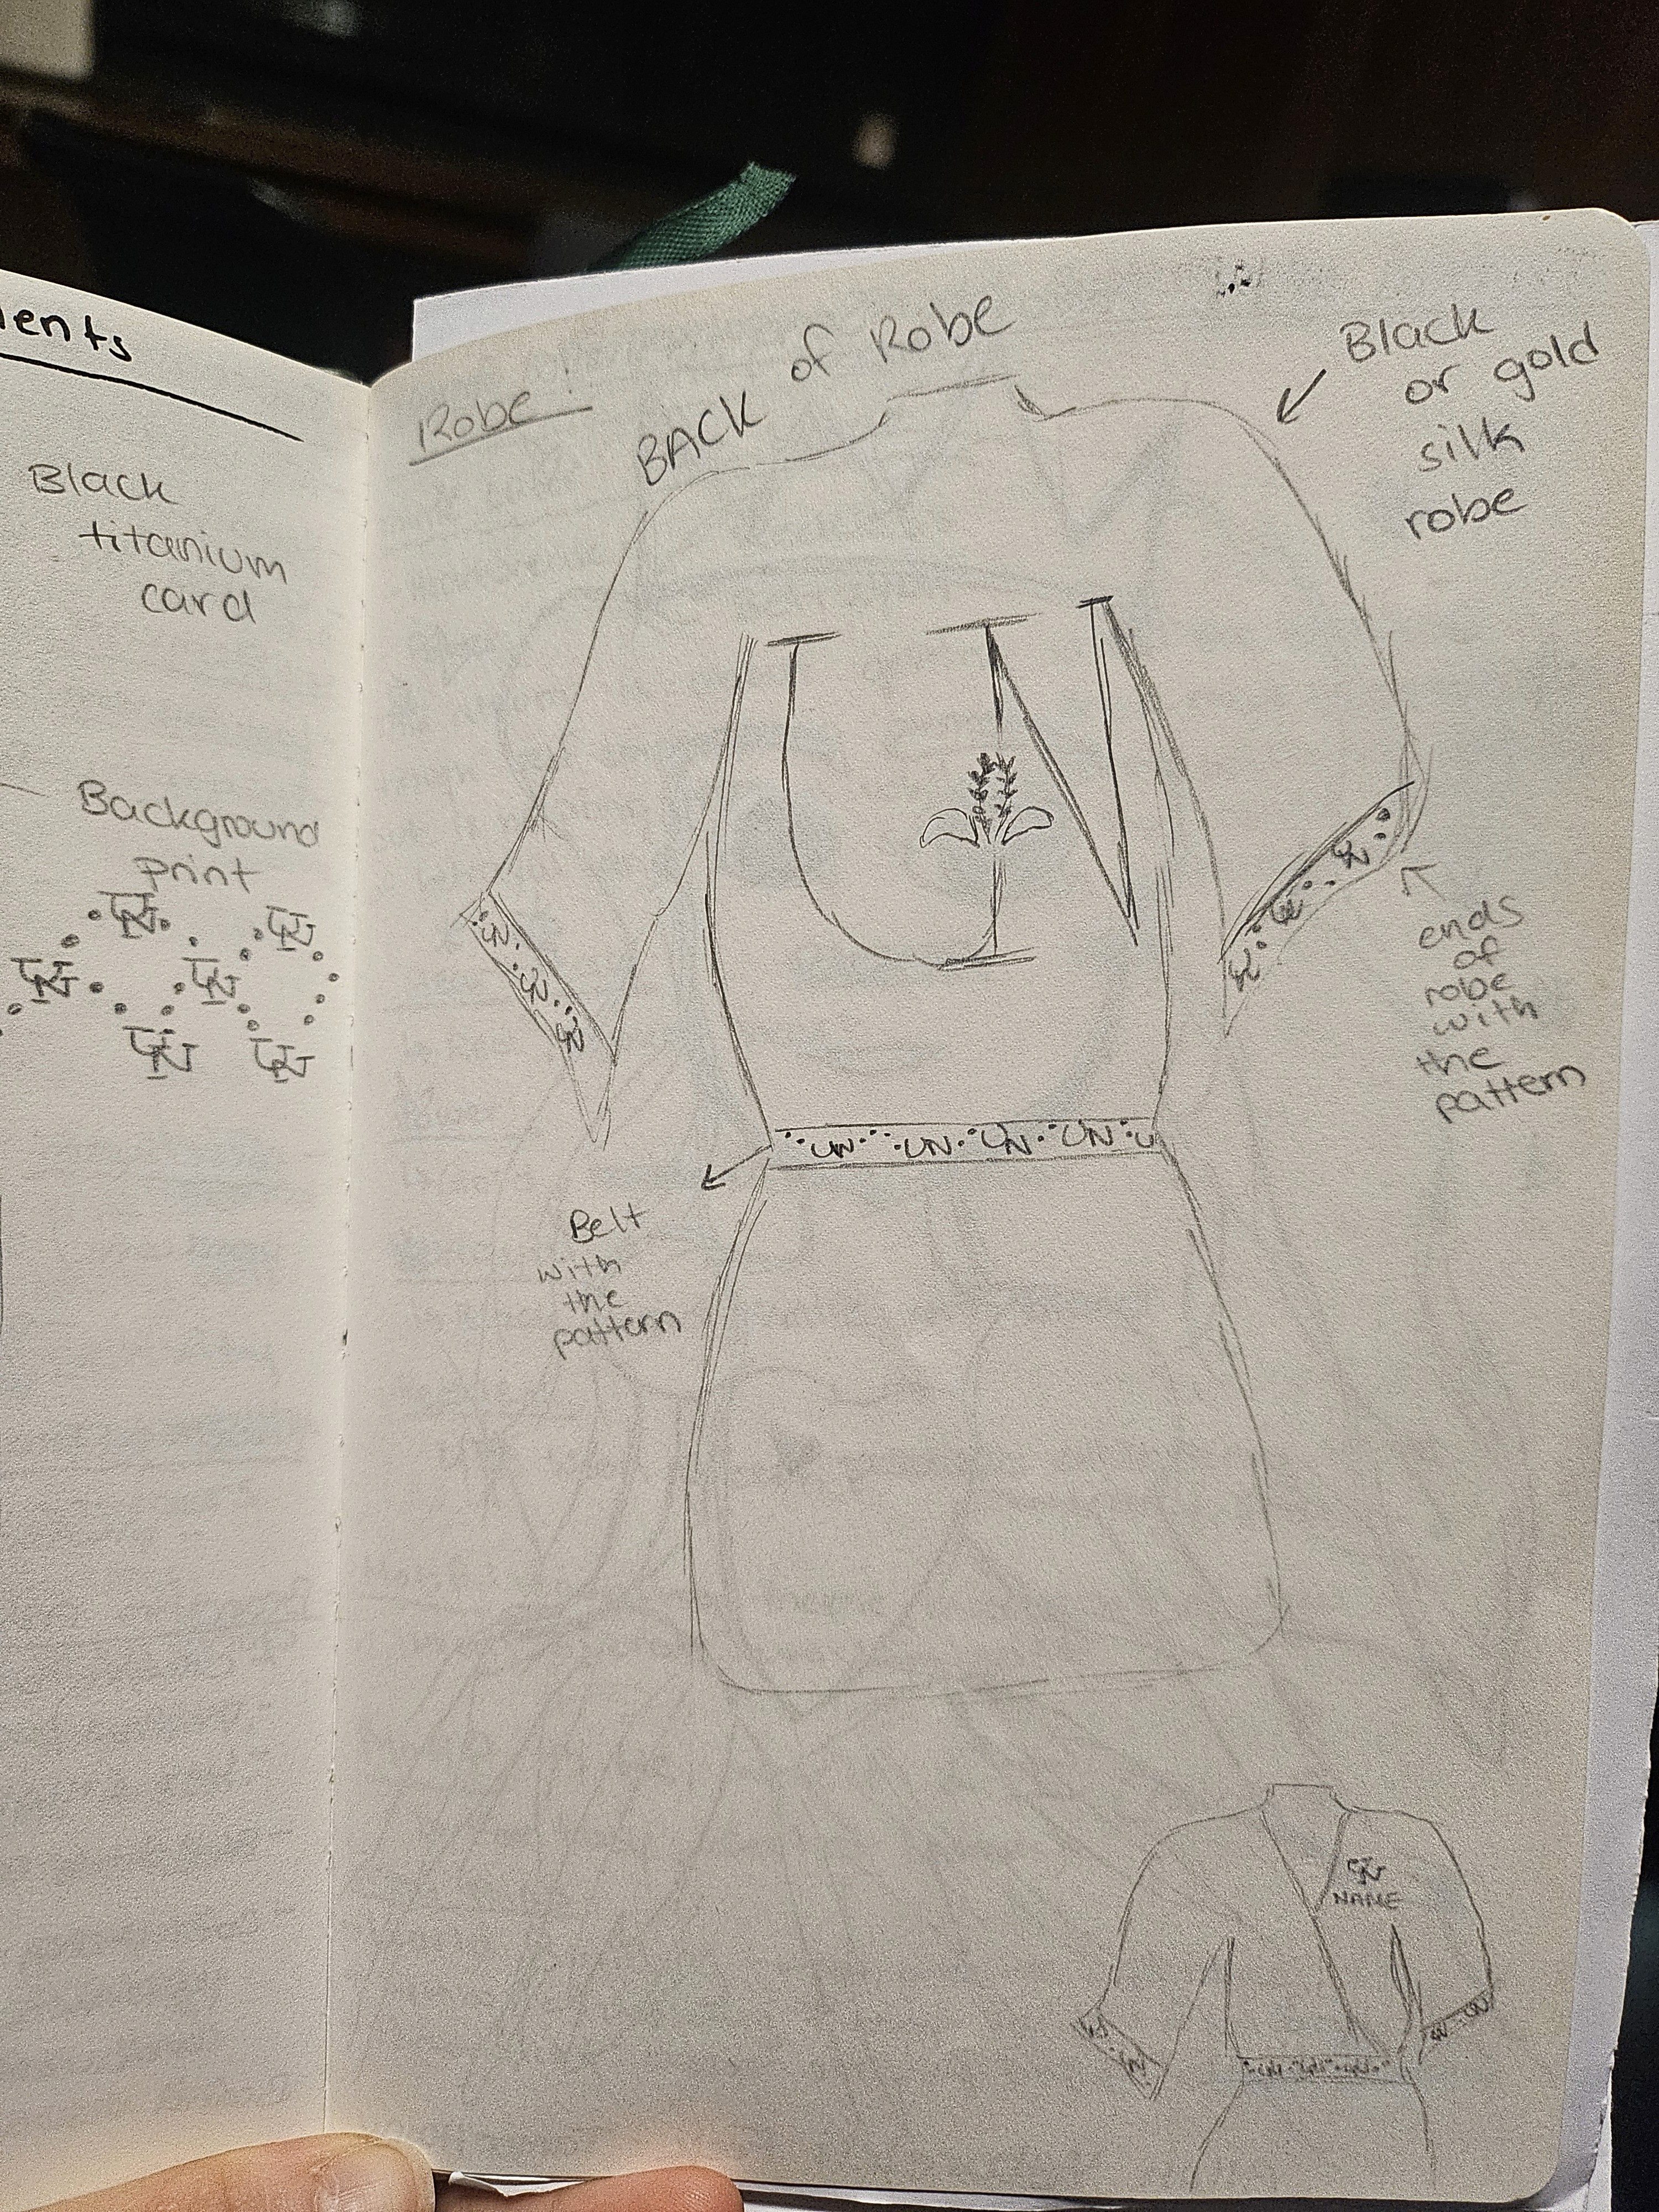 ents
Black
titanium
card
Background
print
UN
UN
UN
UN
UN
UN
Robe:
BACK of Robe
Black
or gold
silk
robe
UN
UN UN UN
UN UN UN
ends
of
robe
with
the
pattern
UN UN UN UN U
Belt
with
the
pattern
UN
NAME
UN UN
UN UN
UN UN UN